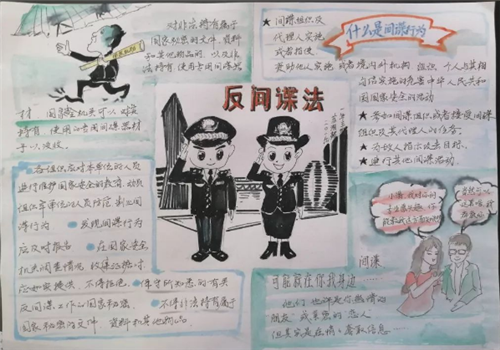 对非法持有属于
国家秘密的文件、资料
和其他物品的，以及非
法持有、使用专用间谍器
材，国家安全机关可以
持有、使用的专用间谍器材
予以没收。
反间谍法
什么是间谍行为
★间谍组织及
代理人实施
或者指使、
资助他人实施，或者境内外机构、组织、个人与其相
勾结实施的危害中华人民共和
国国家安全的活动
★参加间谍组织或者接受间谍
组织及其代理人的任务；
★为敌人指示攻击目标。
★进行其他间谍活动。
各组织应对本单位的人员
进行维护国家安全的教育，动员、
组织本单位的人员防范、制止间
谍行为
发现间谍行为
应及时报告
在国家安全
机关调查情况、收集证据时
应如实提供，不得拒绝。
保守所知悉的有关
反间谍工作的国家秘密。
不得非法持有属于
国家秘密的文件、资料和其他物品
间谍
可能就在你我身边……
他们，也许是你热情的
朋友，或亲密的恋人
但其实是在偷偷套取信息